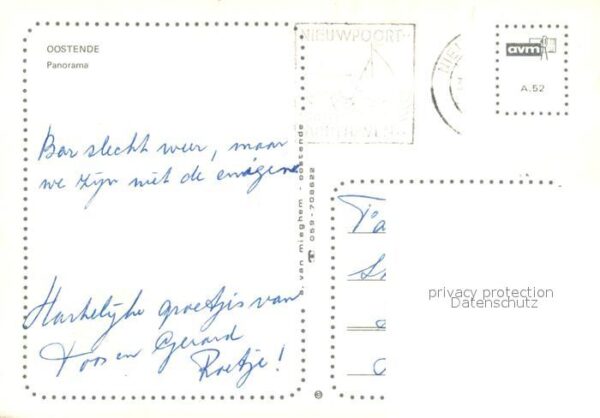 OOSTENDE
Panorama
NIEUWPOORT
avm
A.52
Bar slecht weer, maar
we zijn niet de enigene
Hartelijke groetjes van
Toos en Gerard
Roetje!
a. van mieghem - oostende
059-708622
privacy protection
Datenschutz